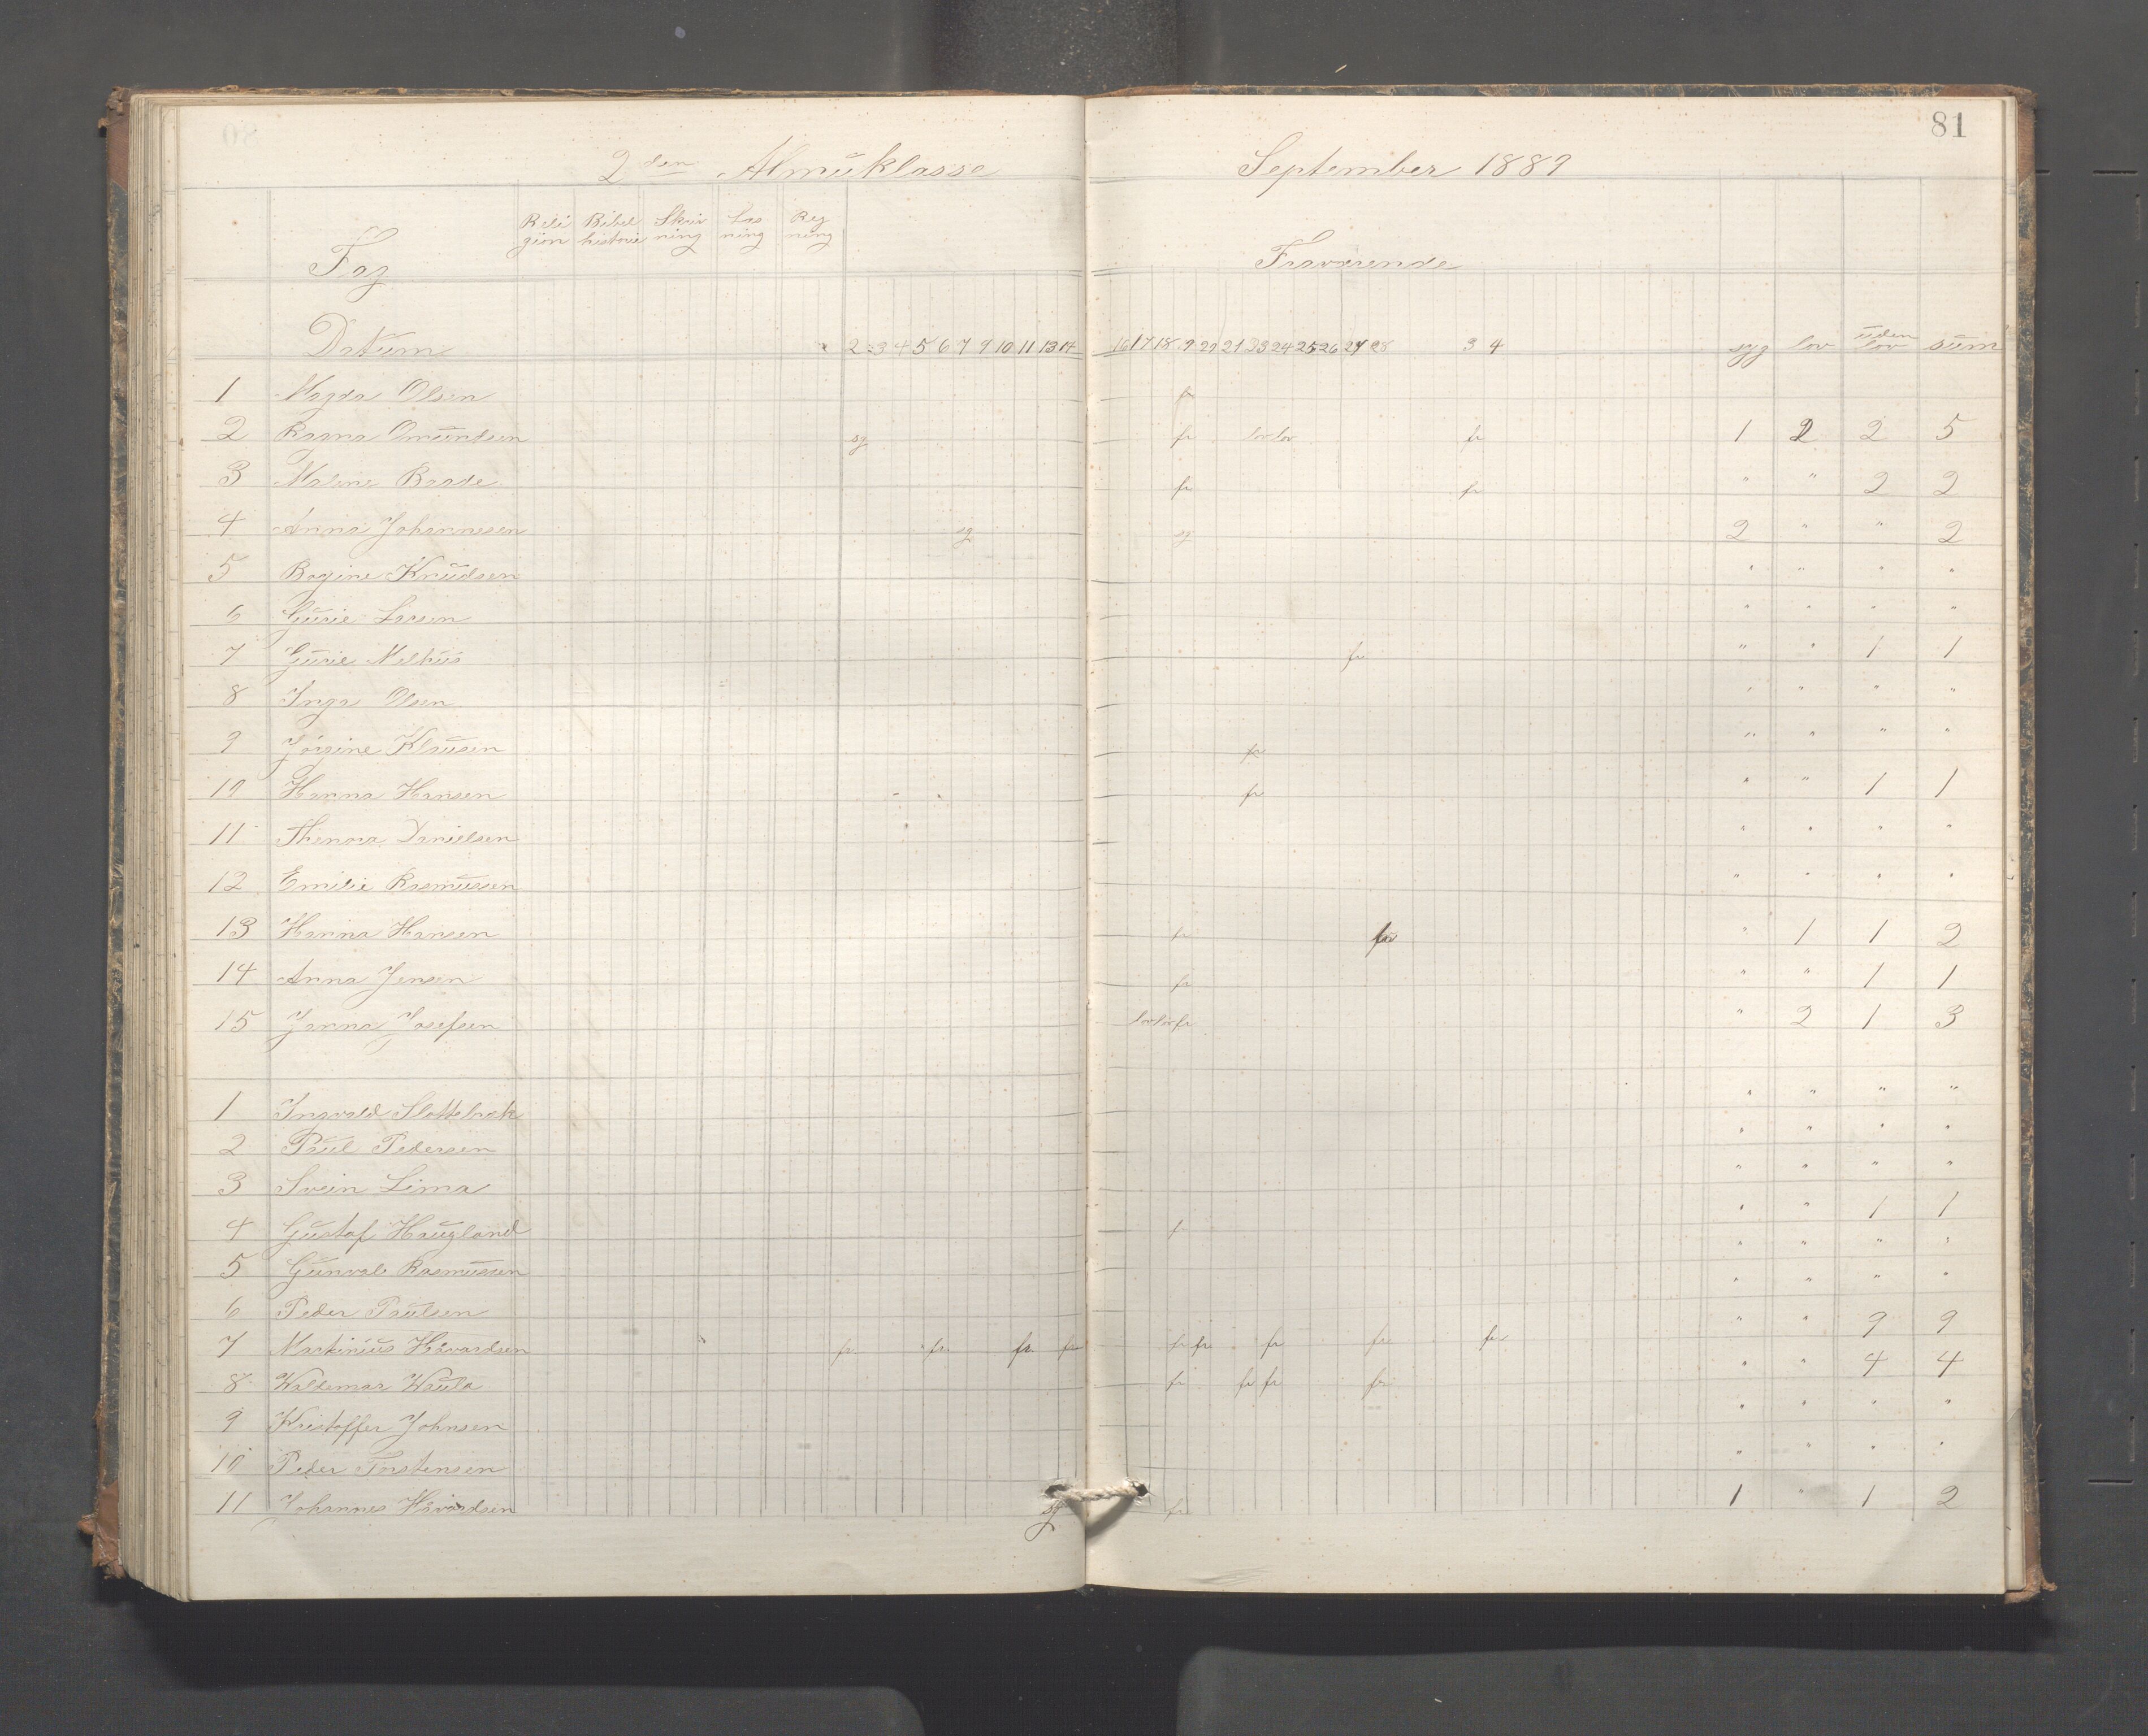 81
2den Almuklasse September 1889
Fag Religion Bibelhistorie Skrivning Læsning Regning Fraværende
Datum 2 3 4 5 6 7 9 10 11 13 14 16 17 18 19 20 21 23 24 25 26 27 28 3 4 syg lov uden lov sum
1 Magda Olsen fr
2 Ragna Omundsen sg fr lov lov fr 1 2 2 5
3 Malene Baade fr fr " " 2 2
4 Anna Johannesen sg sg 2 " " 2
5 Bogine Knudsen " " " "
6 Gurie Larsen " " " "
7 Gurie Melhus fr " " 1 1
8 Inga Olsen " " " "
9 Jørgine Klausen fr " " " "
10 Hanna Hansen fr " " 1 1
11 Thenora Danielsen " " " "
12 Emilie Rasmussen " " " "
13 Hanna Hansen fr " 1 1 2
14 Anna Jensen fr " " 1 1
15 Janna Josefsen lov lov fr " 2 1 3
1 Ingvald Slottebrok " " " "
2 Paul Pedersen " " " "
3 Svein Lima " " " "
4 Gustaf Haugland fr " " 1 1
5 Gunvald Rasmussen " " " "
6 Peder Paulsen " " " "
7 Martinius Håvardsen fr. fr. fr. fr fr fr fr fr fr " " 9 9
8 Waldemar Waula fr fr fr fr " " 4 4
9 Kristoffer Johnsen " " " "
10 Peder Torstensen " " " "
11 Johannes Håvardsen sg fr 1 " 1 2